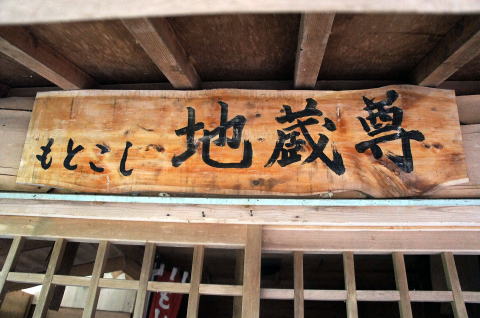 もとこし地蔵尊